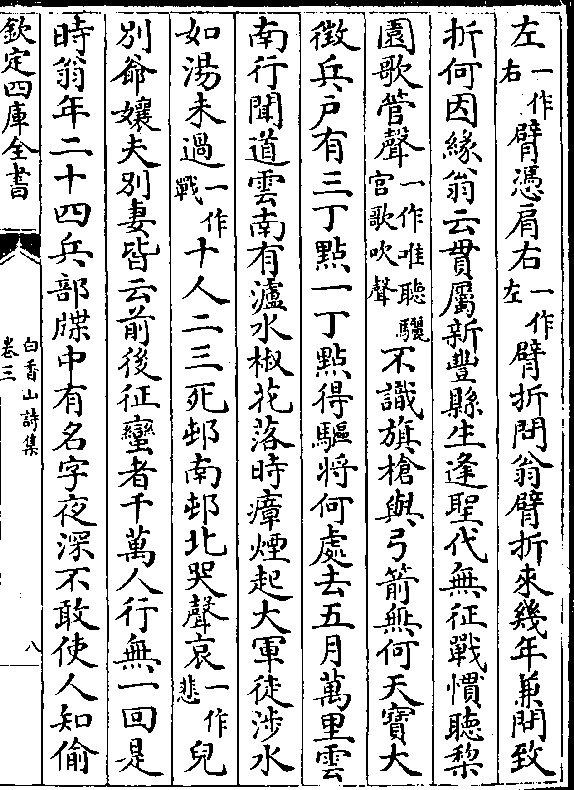 左一作右臂憑肩右一作左臂折問翁臂折來幾年兼問致
折何因緣翁云貫屬新豐縣生逢聖代無征戰慣聽棃
園歌管聲一作唯聽驪宫歌吹聲不識旗槍與弓箭無何天寶大
徴兵戸有三丁點一丁點得驅將何處去五月萬里雲
南行聞道雲南有瀘水椒花落時瘴煙起大軍徒涉水
如湯未過一作戰十人二三死邨南邨北哭聲哀一作悲兒
別爺孃夫別妻皆云前後征蠻者千萬人行無一回是
時翁年二十四兵部牒中有名字夜深不敢使人知偷
欽定四庫全書
白香山詩集
卷三
八